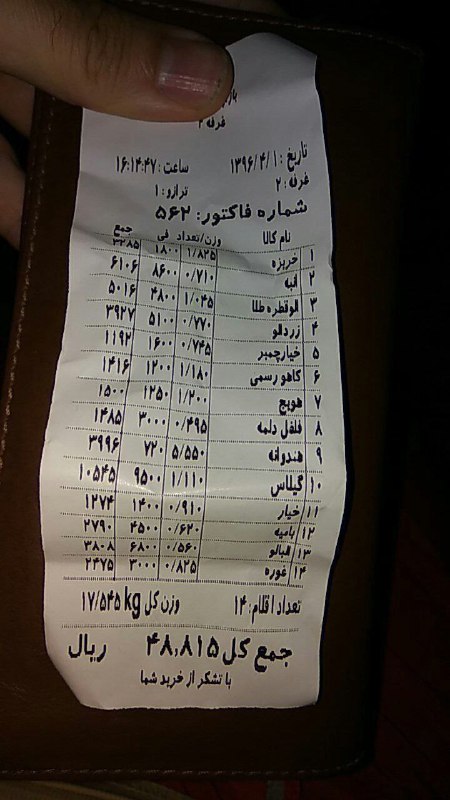 غرفه ۲
تاریخ : ۱۳۹۶/۴/۱ ساعت : ۱۶:۱۴:۴۷
غرفه : ۲ ترازو : ۱
شماره فاکتور: ۵۶۲
نام کالا وزن/تعداد فی جمع
۱ خربزه ۱/۸۲۵ ۱۸۰۰ ۳۲۸۵
۲ انبه ۰/۷۱۰ ۸۶۰۰ ۶۱۰۶
۳ الوقطره طلا ۱/۰۴۵ ۴۸۰۰ ۵۰۱۶
۴ زردالو ۰/۷۷۰ ۵۱۰۰ ۳۹۲۷
۵ خیارچمبر ۰/۷۴۵ ۱۶۰۰ ۱۱۹۲
۶ کاهو رسمی ۱/۱۸۰ ۱۲۰۰ ۱۴۱۶
۷ هویج ۱/۲۰۰ ۱۲۵۰ ۱۵۰۰
۸ فلفل دلمه ۰/۴۹۵ ۳۰۰۰ ۱۴۸۵
۹ هندوانه ۵/۵۵۰ ۷۲۰ ۳۹۹۶
۱۰ گیلاس ۱/۱۱۰ ۹۵۰۰ ۱۰۵۴۵
۱۱ خیار ۰/۹۱۰ ۱۴۰۰ ۱۲۷۴
۱۲ بامیه ۰/۶۲۰ ۴۵۰۰ ۲۷۹۰
۱۳ البالو ۰/۵۶۰ ۶۸۰۰ ۳۸۰۸
۱۴ غوره ۰/۸۲۵ ۳۰۰۰ ۲۴۷۵
تعداد اقلام : ۱۴ وزن کل ۱۷/۵۴۵ kg
جمع کل ۴۸,۸۱۵ ریال
با تشکر از خرید شما